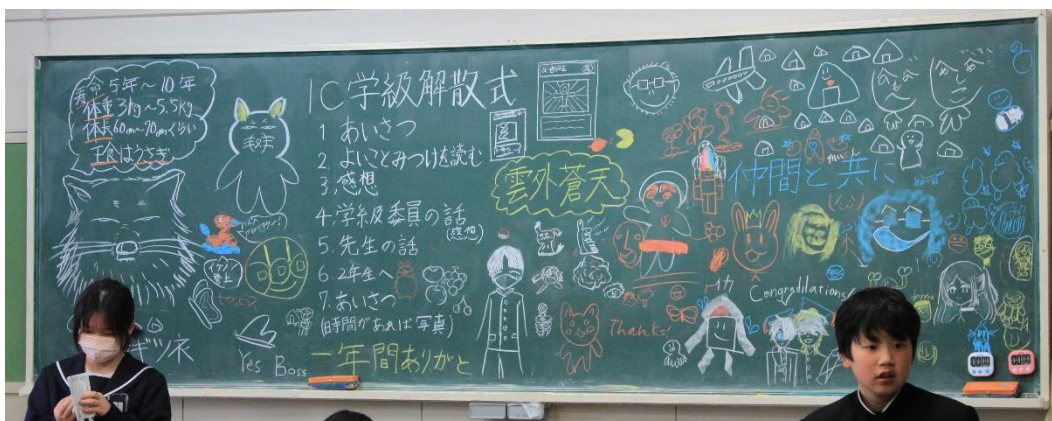 寿命 5年〜10年
体重 3kg〜5.5kg
体長60cm〜70cmくらい
主食はうさぎ
1C学級解散式
1. あいさつ
2. よいことみつけを読む
3. 感想
4. 学級委員の話
(感想)
5. 先生の話
6. 2年生へ
7. あいさつ
(時間があれば写真)
一年間ありがと
Yes Boss
雲外蒼天
仲間と共に
イカ
Thanks!
Congradilations!